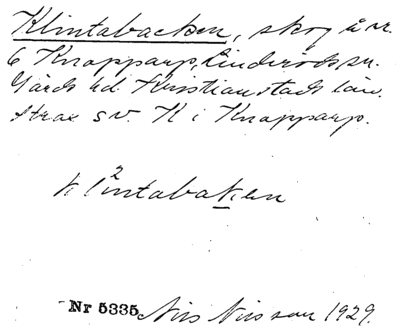 Klintabacken, skog å nr.
6 Knopparp, Linderöds sn.
Gärds hd Kristianstads län.
Strax s v. K i Knopparp.
kl²intabaken
Nr 5335 Nils Nilsson 1929.